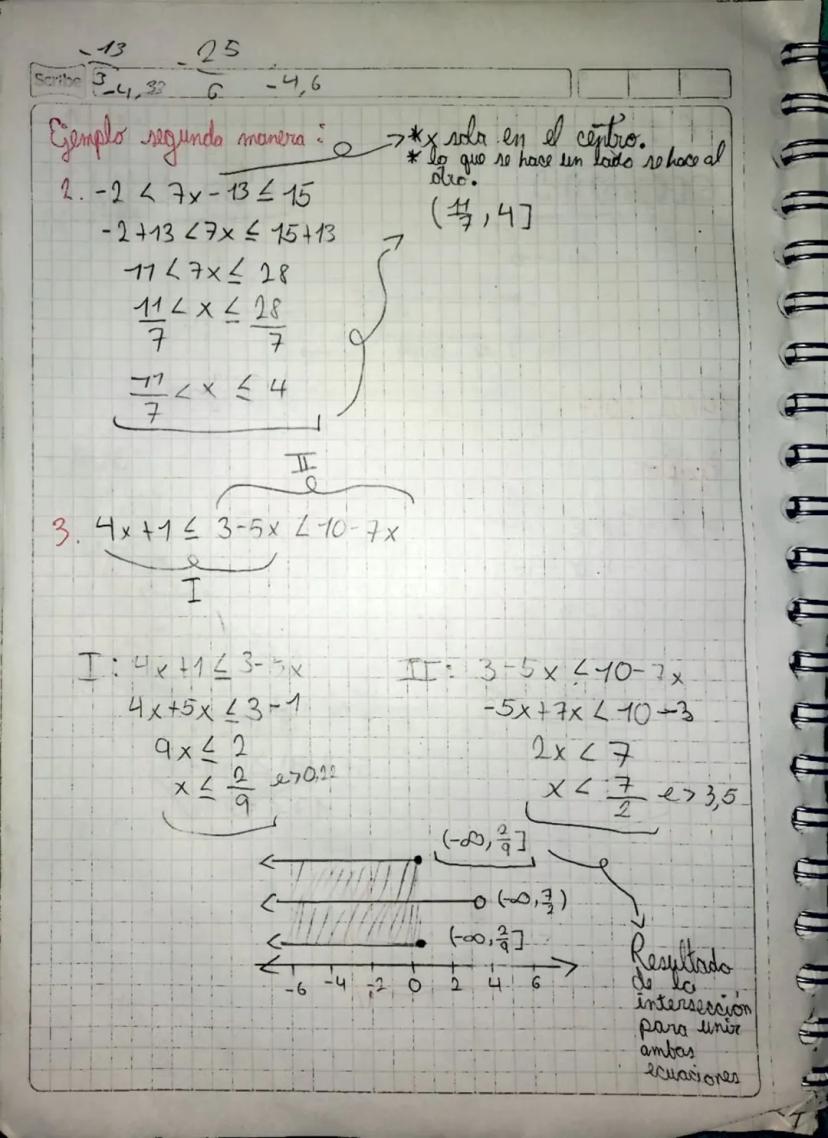 -13/3 -25/6
Scribe -4,33 -4,6
Ejemplo segunda manera: → * x sola en el centro.
* lo que se hace un lado se hace al
otro.
2. -2 < 7x - 13 ≤ 15
(11/7, 4]
-2+13 < 7x ≤ 15+13
11 < 7x ≤ 28
11/7 < x ≤ 28/7
11/7 < x ≤ 4
II
3. 4x+1 ≤ 3-5x < 10-7x
I
I: 4x+1 ≤ 3-5x
4x+5x ≤ 3-1
9x ≤ 2
x ≤ 2/9 → 0,22
II: 3-5x < 10-7x
-5x+7x < 10-3
2x < 7
x < 7/2 → 3,5
(-∞, 2/9]
(-∞, 7/2)
(-∞, 2/9]
-6 -4 -2 0 2 4 6
Resultado
de la
intersección
para unir
ambas
ecuaciones